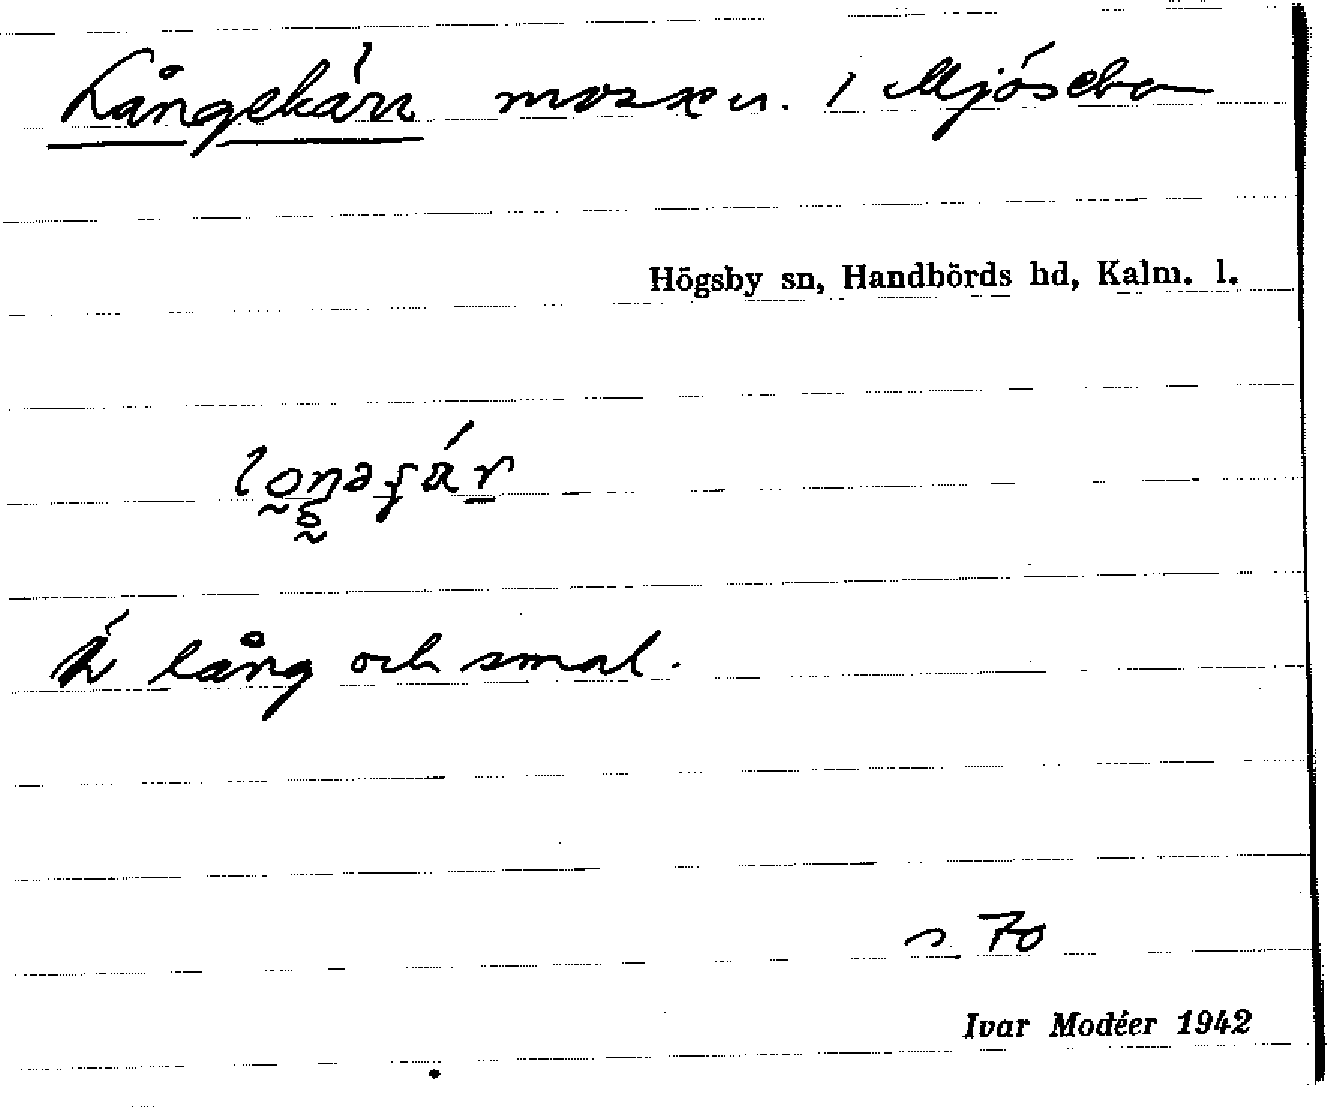 Långekärr mosse n. i Mjösebo
Högsby sn, Handbörds hd, Kalm. l.
Är lång och smal.
s. 70
Ivar Modéer 1942